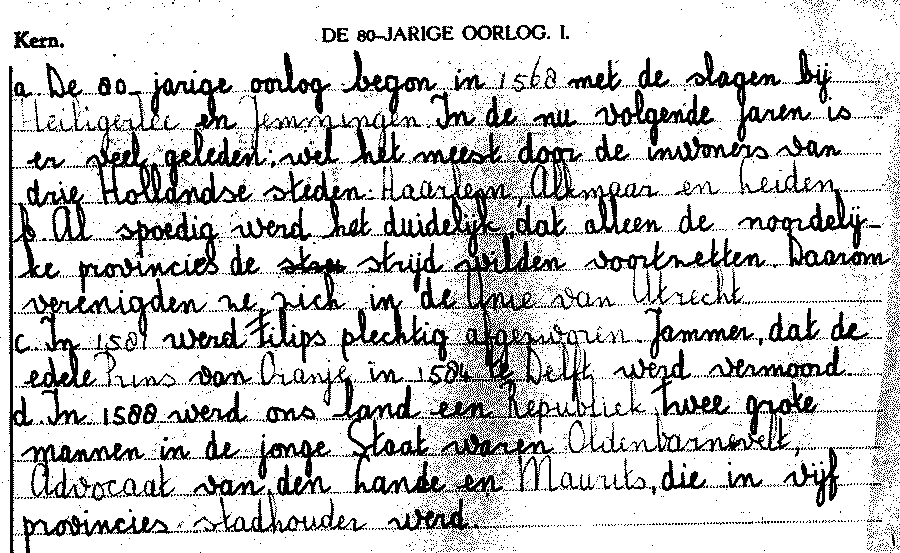 Kern.
DE 80-JARIGE OORLOG. I.
a. De 80-jarige oorlog begon in 1568 met de slagen bij
Heiligerlee en Jemmingen. In de nu volgende jaren is
er veel geleden; wel het meest door de inwoners van
drie Hollandse steden: Haarlem, Alkmaar en Leiden.
b. Al spoedig werd het duidelijk, dat alleen de noordelij-
ke provincies de strijd wilden voortzetten. Daarom
verenigden ze zich in de Unie van Utrecht.
c. In 1581 werd Filips plechtig afgezworen. Jammer, dat de
edele Prins van Oranje in 1584 te Delft werd vermoord.
d. In 1588 werd ons land een Republiek. Twee grote
mannen in de jonge Staat waren Oldenbarnevelt,
Advocaat van den Lande en Maurits, die in vijf
provincies stadhouder werd.